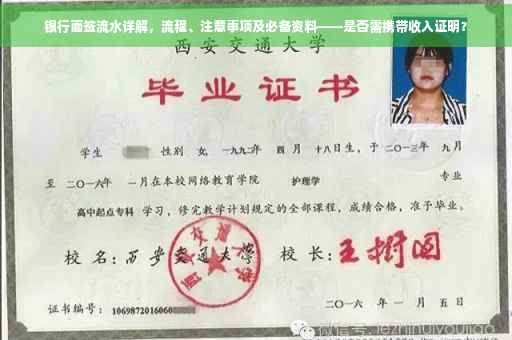 银行面签流水详解，流程、注意事项及必备资料——是否需携带收入证明？
西安交通大学
毕业证书
学生 性别 女，一九九二年 四月 十八日生，于二〇一三年 九月
至 二〇一六年 一月在本校网络教育学院 护理学 专业
高中起点专科 学习，修完教学计划规定的全部课程，成绩合格，准予毕业。
校 名：西安交通大学 校 长：王树国
西安交通大学
证书编号：1069872016060
二〇一六 年 一 月 五 日
微信号:jezhihuiyoujiao